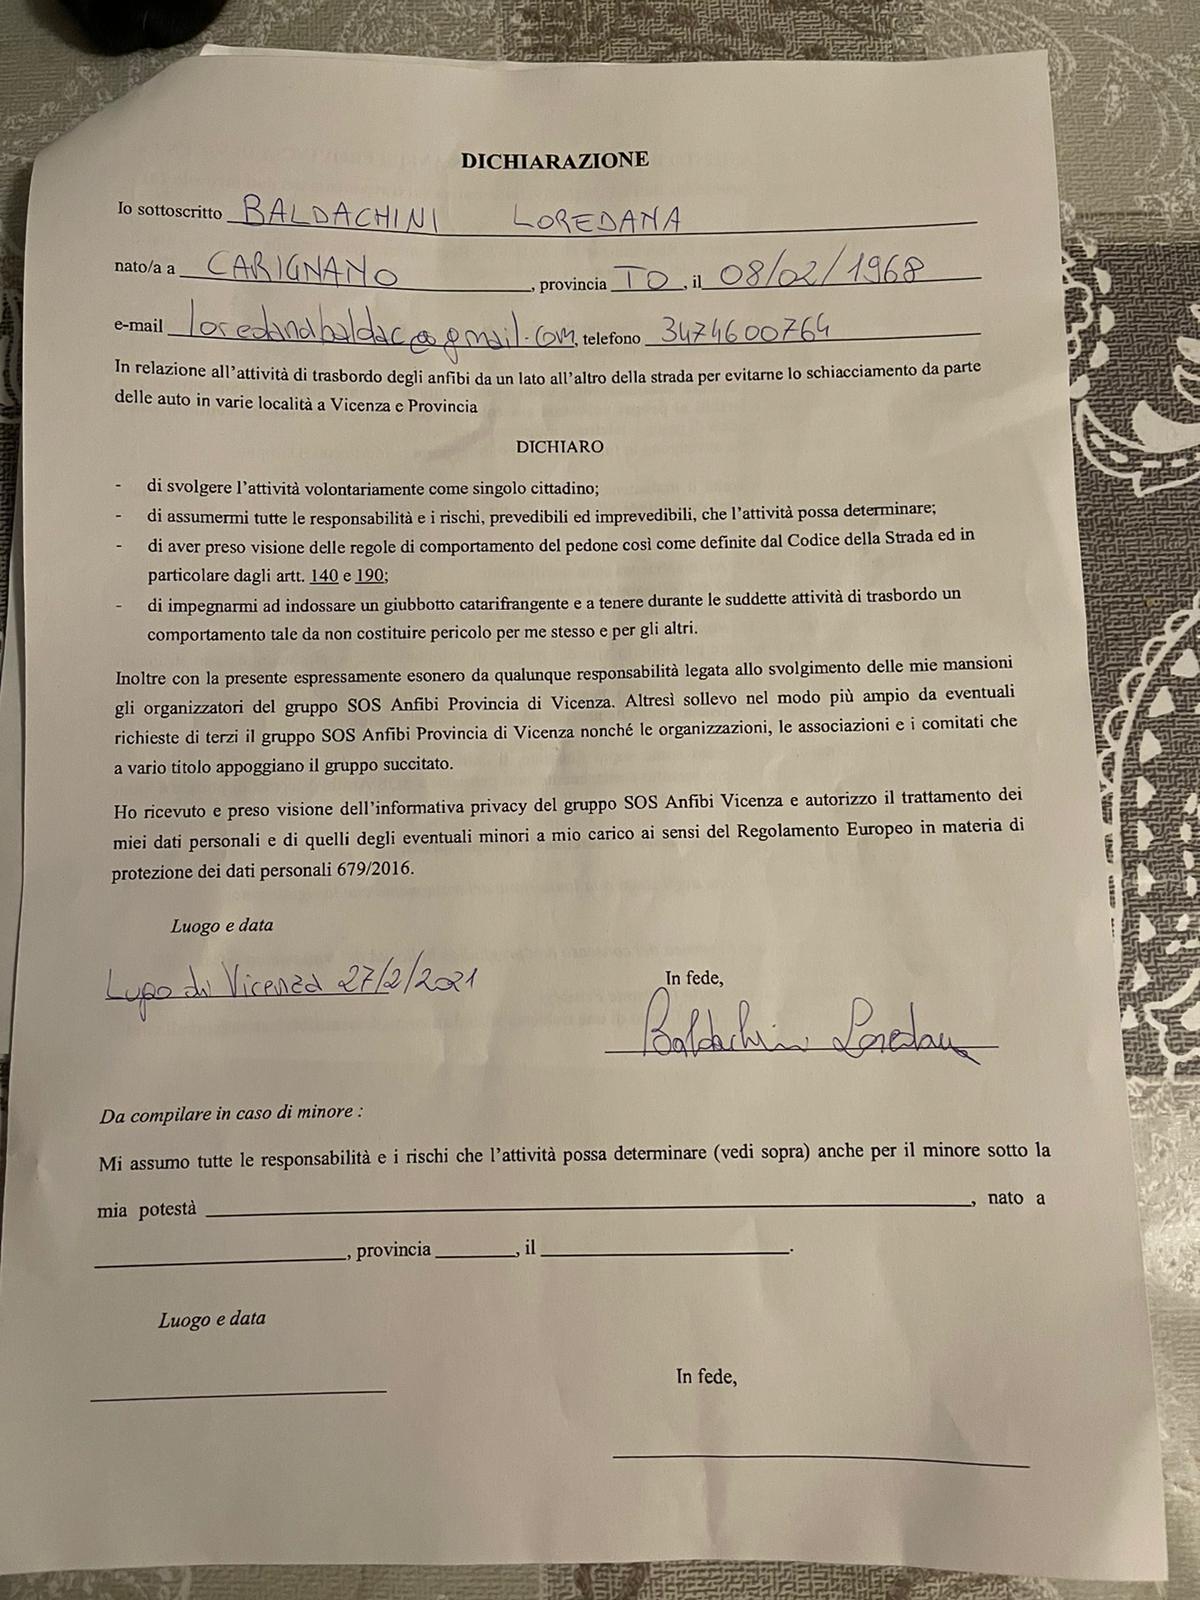 DICHIARAZIONE
Io sottoscritto BALDACHINI LOREDANA
nato/a a CARIGNANO, provincia TO, il 08/02/1968
e-mail loredanabaldac@gmail.com, telefono 3474600764
In relazione all'attività di trasbordo degli anfibi da un lato all'altro della strada per evitarne lo schiacciamento da parte
delle auto in varie località a Vicenza e Provincia
DICHIARO
- di svolgere l'attività volontariamente come singolo cittadino;
- di assumermi tutte le responsabilità e i rischi, prevedibili ed imprevedibili, che l'attività possa determinare;
- di aver preso visione delle regole di comportamento del pedone così come definite dal Codice della Strada ed in
particolare dagli artt. 140 e 190;
- di impegnarmi ad indossare un giubbotto catarifrangente e a tenere durante le suddette attività di trasbordo un
comportamento tale da non costituire pericolo per me stesso e per gli altri.
Inoltre con la presente espressamente esonero da qualunque responsabilità legata allo svolgimento delle mie mansioni
gli organizzatori del gruppo SOS Anfibi Provincia di Vicenza. Altresì sollevo nel modo più ampio da eventuali
richieste di terzi il gruppo SOS Anfibi Provincia di Vicenza nonché le organizzazioni, le associazioni e i comitati che
a vario titolo appoggiano il gruppo succitato.
Ho ricevuto e preso visione dell'informativa privacy del gruppo SOS Anfibi Vicenza e autorizzo il trattamento dei
miei dati personali e di quelli degli eventuali minori a mio carico ai sensi del Regolamento Europeo in materia di
protezione dei dati personali 679/2016.
Luogo e data
Lupo di Vicenza 27/2/2021
In fede,
Baldachini Loredana
Da compilare in caso di minore :
Mi assumo tutte le responsabilità e i rischi che l'attività possa determinare (vedi sopra) anche per il minore sotto la
mia potestà , nato a
, provincia , il .
Luogo e data
In fede,